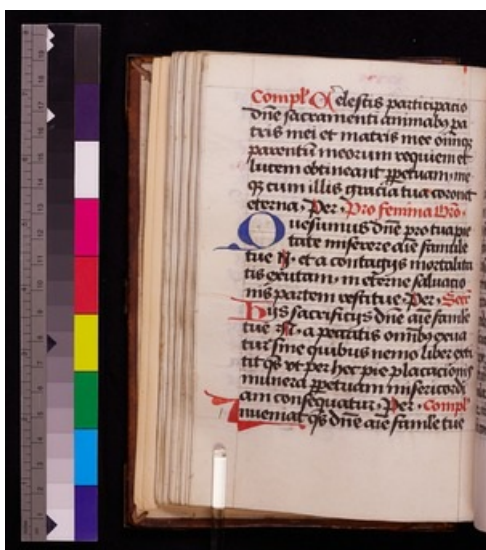 Compl' Celestis participacio
dñe sacramenti animabꝫ pa
tris mei et matris mee õniuqꝫ
parentũ meorum requiem et
lucem obtineant ꝑpetuam· me
qꝫ cum illis gracia tua coronet
eterna· Per· Pro femina Oro·
Quesumus dñe pro tua pie
tate miserere aĩe famule
tue N̄· et a contagijs mortalita
tis exutam· in eterne saluacio
nis partem restitue· Per· Secr̃
Hijs sacrificijs dñe aĩe famule
tue N̄· a peccatis omĩbꝫ exua
tur sine quibus nemo liber exti
tit q̃s vt per hec pie placacionis
munera ꝑpetuam misericordi
am consequatur· Per· Compl'
Inueniat q̃s dñe aĩe famule tue